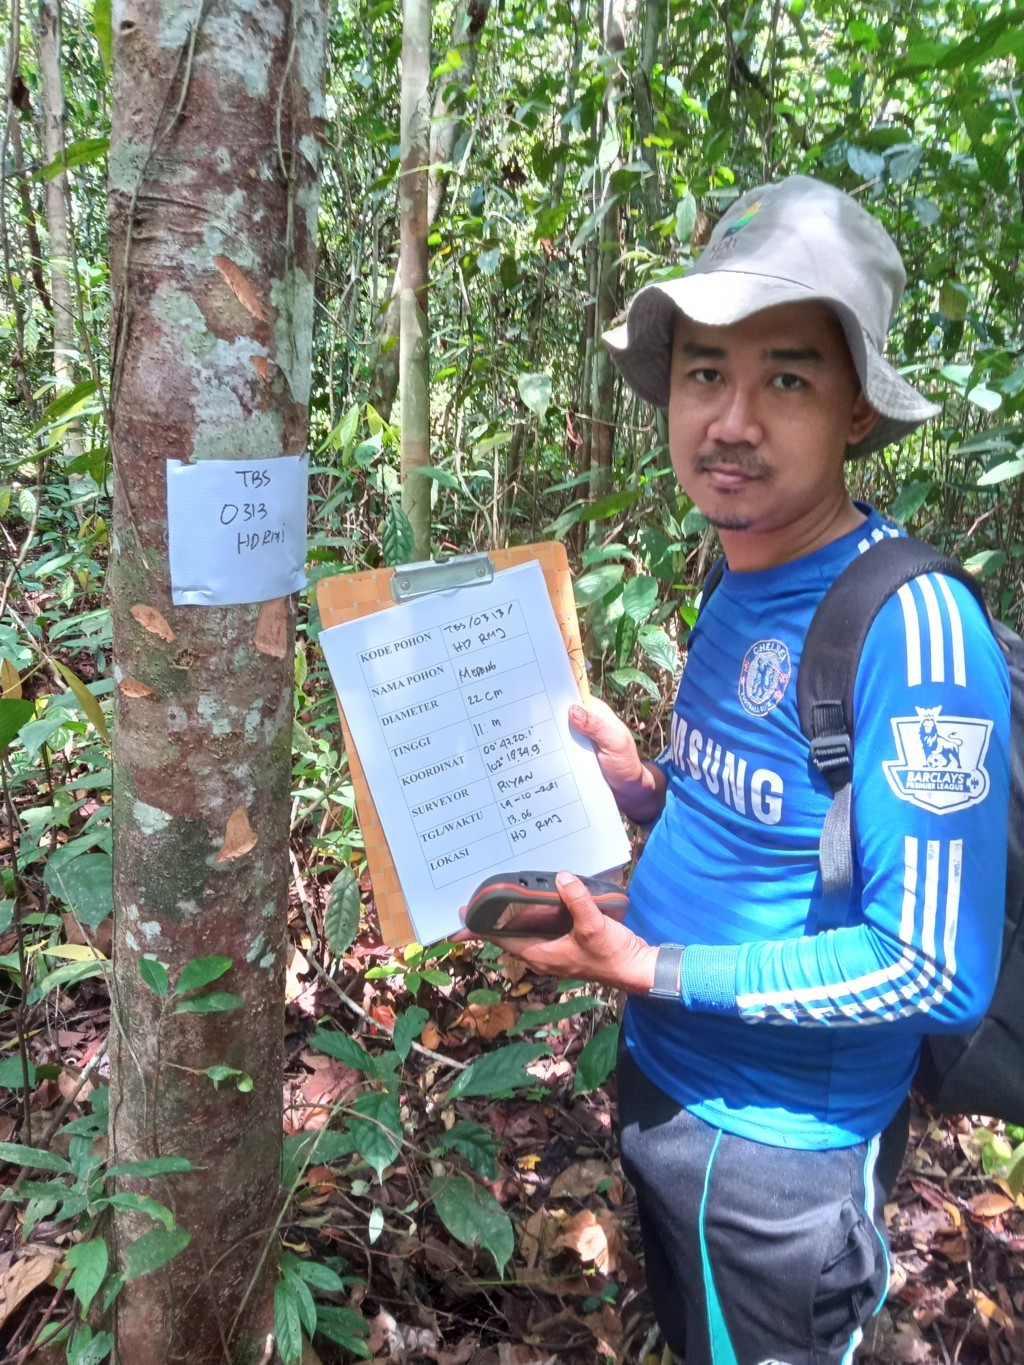 TBS
0313
HD RMJ
KODE POHON TBS/0313/
HD RMJ
NAMA POHON
DIAMETER 22 Cm
TINGGI 11 m
KOORDINAT 00° 42.20.1'
102° 18.34.9'
SURVEYOR RIYAN
TGL/WAKTU 19-10-2021
13.06
LOKASI HD RMJ
CHELSEA
FOOTBALL CLUB
AMSUNG
BARCLAYS
PREMIER LEAGUE